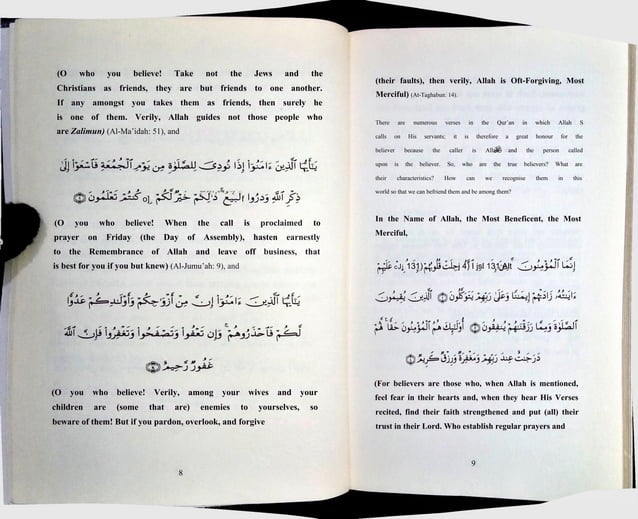 (O who you believe! Take not the Jews and the
Christians as friends, they are but friends to one another.
If any amongst you takes them as friends, then surely he
is one of them. Verily, Allah guides not those people who
are Zalimun) (Al-Ma'idah: 51), and
يَٰٓأَيُّهَا ٱلَّذِينَ ءَامَنُوٓا۟ إِذَا نُودِىَ لِلصَّلَوٰةِ مِن يَوْمِ ٱلْجُمُعَةِ فَٱسْعَوْا۟ إِلَىٰ
ذِكْرِ ٱللَّهِ وَذَرُوا۟ ٱلْبَيْعَ ۚ ذَٰلِكُمْ خَيْرٌ لَّكُمْ كُنتُمْ تَعْلَمُونَ
(O you who believe! When the call is proclaimed to
prayer on Friday (the Day of Assembly), hasten earnestly
to the Remembrance of Allah and leave off business, that
is best for you if you but knew) (Al-Jumu'ah: 9), and
يَٰٓأَيُّهَا ٱلَّذِينَ ءَامَنُوٓا۟ إِنَّ مِنْ أَزْوَٰجِكُمْ وَأَوْلَٰدِكُمْ عَدُوًّا
لَّكُمْ فَٱحْذَرُوهُمْ ۚ وَإِن تَعْفُوا۟ وَتَصْفَحُوا۟ وَتَغْفِرُوا۟ فَإِنَّ ٱللَّهَ
غَفُورٌ رَّحِيمٌ
(O you who believe! Verily, among your wives and your
children are (some that are) enemies to yourselves, so
beware of them! But if you pardon, overlook, and forgive
8
(their faults), then verily, Allah is Oft-Forgiving, Most
Merciful) (At-Taghabun: 14).
There are numerous verses in the Qur'an in which Allah S
calls on His servants; it is therefore a great honour for the
believer because the caller is Allah and the person called
upon is the believer. So, who are the true believers? What are
their characteristics? How can we recognise them in this
world so that we can befriend them and be among them?
In the Name of Allah, the Most Beneficent, the Most
Merciful,
إِنَّمَا ٱلْمُؤْمِنُونَ ٱللَّهُ وَجِلَتْ قُلُوبُهُمْ عَلَيْهِمْ
ءَايَٰتُهُۥ زَادَتْهُمْ إِيمَٰنًا وَعَلَىٰ رَبِّهِمْ يَتَوَكَّلُونَ ٱلَّذِينَ يُقِيمُونَ
ٱلصَّلَوٰةَ وَمِمَّا رَزَقْنَٰهُمْ يُنفِقُونَ أُو۟لَٰٓئِكَ هُمُ ٱلْمُؤْمِنُونَ حَقًّا ۚ لَّهُمْ
دَرَجَٰتٌ عِندَ رَبِّهِمْ وَمَغْفِرَةٌ وَرِزْقٌ كَرِيمٌ
(For believers are those who, when Allah is mentioned,
feel fear in their hearts and, when they hear His Verses
recited, find their faith strengthened and put (all) their
trust in their Lord. Who establish regular prayers and
9